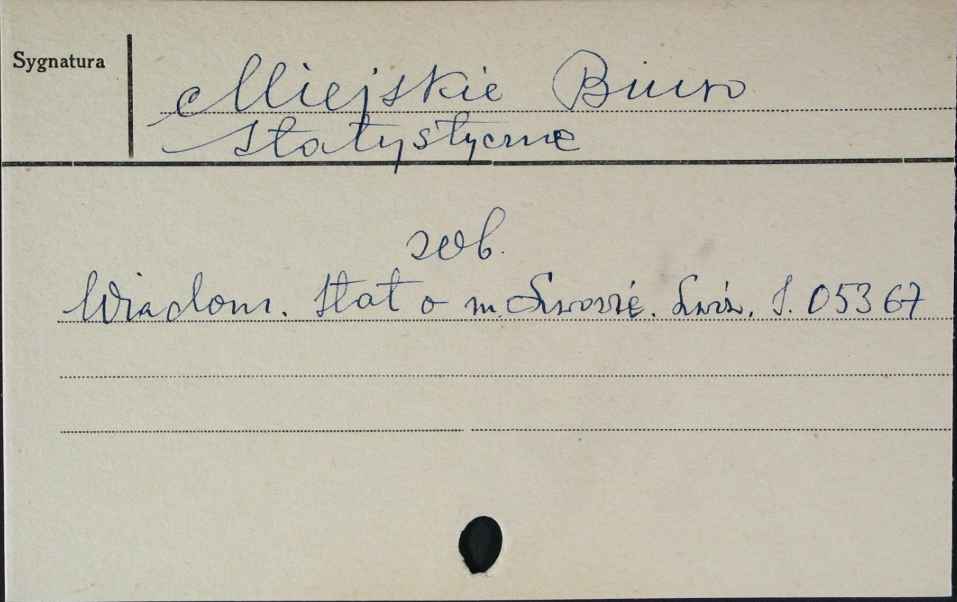 Sygnatura
Miejskie Biuro
Statystyczne
zob.
Wiadom. Stat o m. Lwowie. Lwów. S. 05367